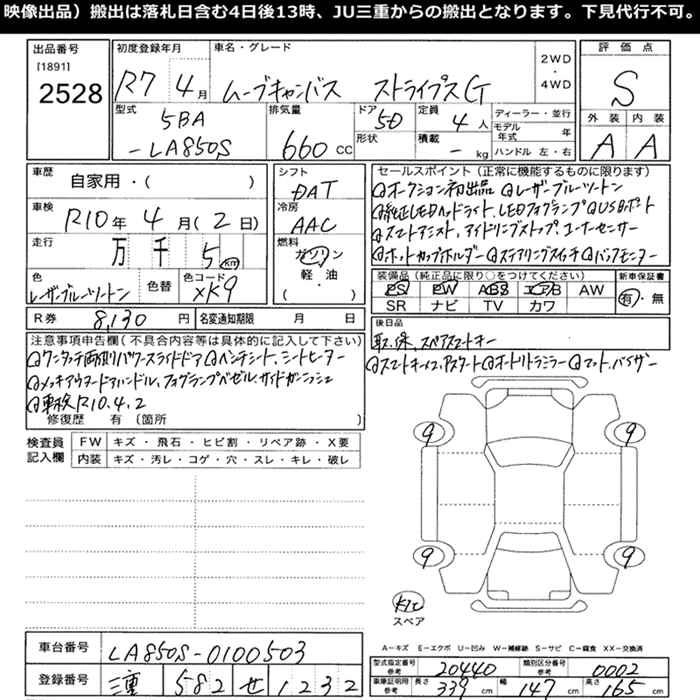 映像出品）搬出は落札日含む4日後13時、JU三重からの搬出となります。下見代行不可。
出品番号
[1891]
2528
初度登録年月
R7 年 4月
車名・グレード
ムーブキャンバス ストライプスG
2WD
・
4WD
評価点
S
外装 内装
A A
型式
5BA
-LA850S
排気量
660 CC
ドア
5D
形状
定員
4人
積載
- kg
ディーラー・並行
モデル年式 年
ハンドル 左・右
車歴
自家用・( )
車検
R10年 4月 (2日)
走行
万 千 5 km
色
レーザーブルーソートン
色替
色コード
XK9
シフト
DAT
冷房
AAC
燃料
ガソリン
軽・油
( )
R券 8,130 円
名変通知期限 月 日
セールスポイント（正常に機能するものに限ります）
◎オークション初出品 ◎レーザーブルーソートン
◎純正LEDヘッドライト、LEDフォグランプ ◎USBポート
◎スマートアシスト、アイドリングストップ、コーナーセンサー
◎ホットカップホルダー ◎ステアリングスイッチ ◎バックモニター
装備品（純正品に限り○をつけてください）
PS PW ABS エアB AW
SR ナビ TV カワ
新車保証書
有・無
後日品
取、保、スペアスマートキー
注意事項申告欄（不具合内容等は具体的に記入して下さい）
◎ワンタッチ両側パワースライドドア ◎ベンチシート、シートヒーター
◎メッキアウタードアハンドル、フォグランプベゼル、サイドガーニッシュ
◎車検R10.4.2
修復歴 有（箇所
◎スマートキー、Pスタート ◎オートリトラミラー ◎マット、バイザー
検査員記入欄
FW キズ・飛石・ヒビ割・リペア跡・X要
内装 キズ・汚レ・コゲ・穴・スレ・キレ・破レ
9 9
9 9
スペア
A-キズ E-エクボ U-凹み W-補修跡 S-サビ C-腐食 XX-交換済
車台番号 LA850S-0100503
登録番号 三重 582 せ 1232
型式指定番号 参考 20440
類別区分番号 参考 0002
車庫証明用 参考 長さ 339 cm 幅 147 cm 高さ 165 cm